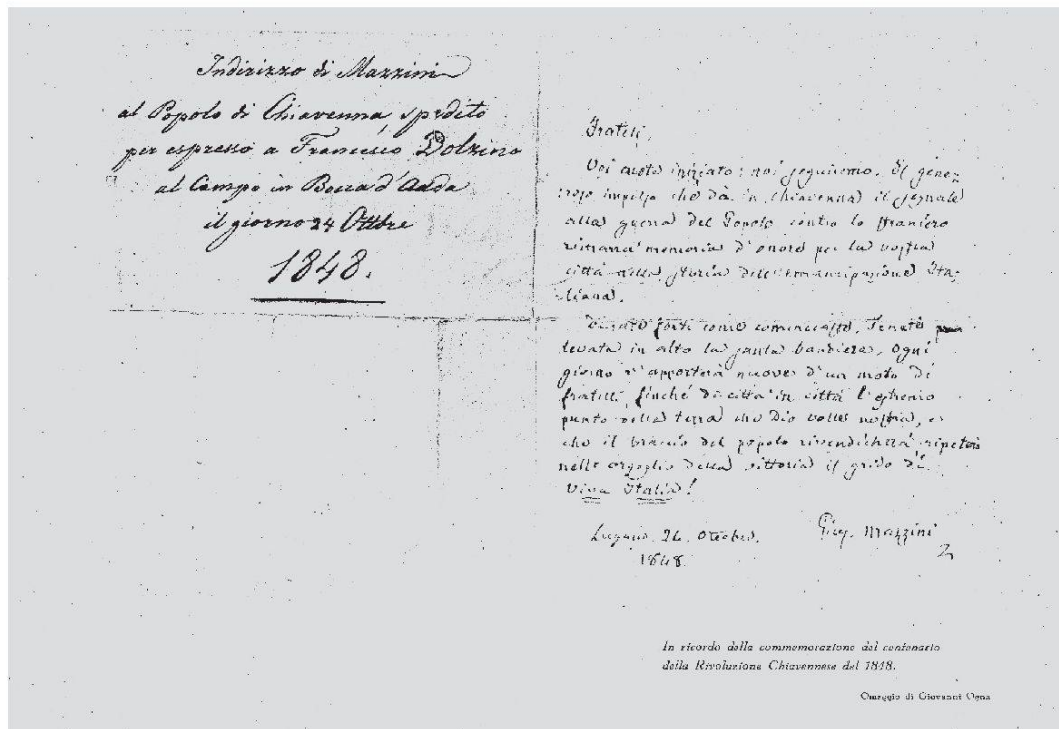 Indirizzo di Mazzini
al Popolo di Chiavenna, spedito
per espresso a Francesco Dolzino
al Campo in Bocca d'Adda
il giorno 24 Ottbre
1848.
Fratelli,
Voi avete iniziato: noi seguiremo. Il gene-
roso impulso che dà in Chiavenna il segnale
alla guerra del Popolo contro lo straniero
rimarrà memoria d'onore per la vostra
città nella storia dell'emancipazione Ita-
liana.
Durate forti come cominciaste. Tenete
levata in alto la santa bandiera. Ogni
giorno v'apporterà nuove d'un moto di
fratelli, finché di città in città l'estremo
punto della terra che Dio volle nostra, e
che il braccio del popolo rivendicherà ripeterà
nello orgoglio della vittoria il grido di
Viva Italia!
Lugano. 24. Ottobre.
1848.
Gius. Mazzini
In ricordo della commemorazione del centenario
della Rivoluzione Chiavennese del 1848.
Omaggio di Giovanni Ogna